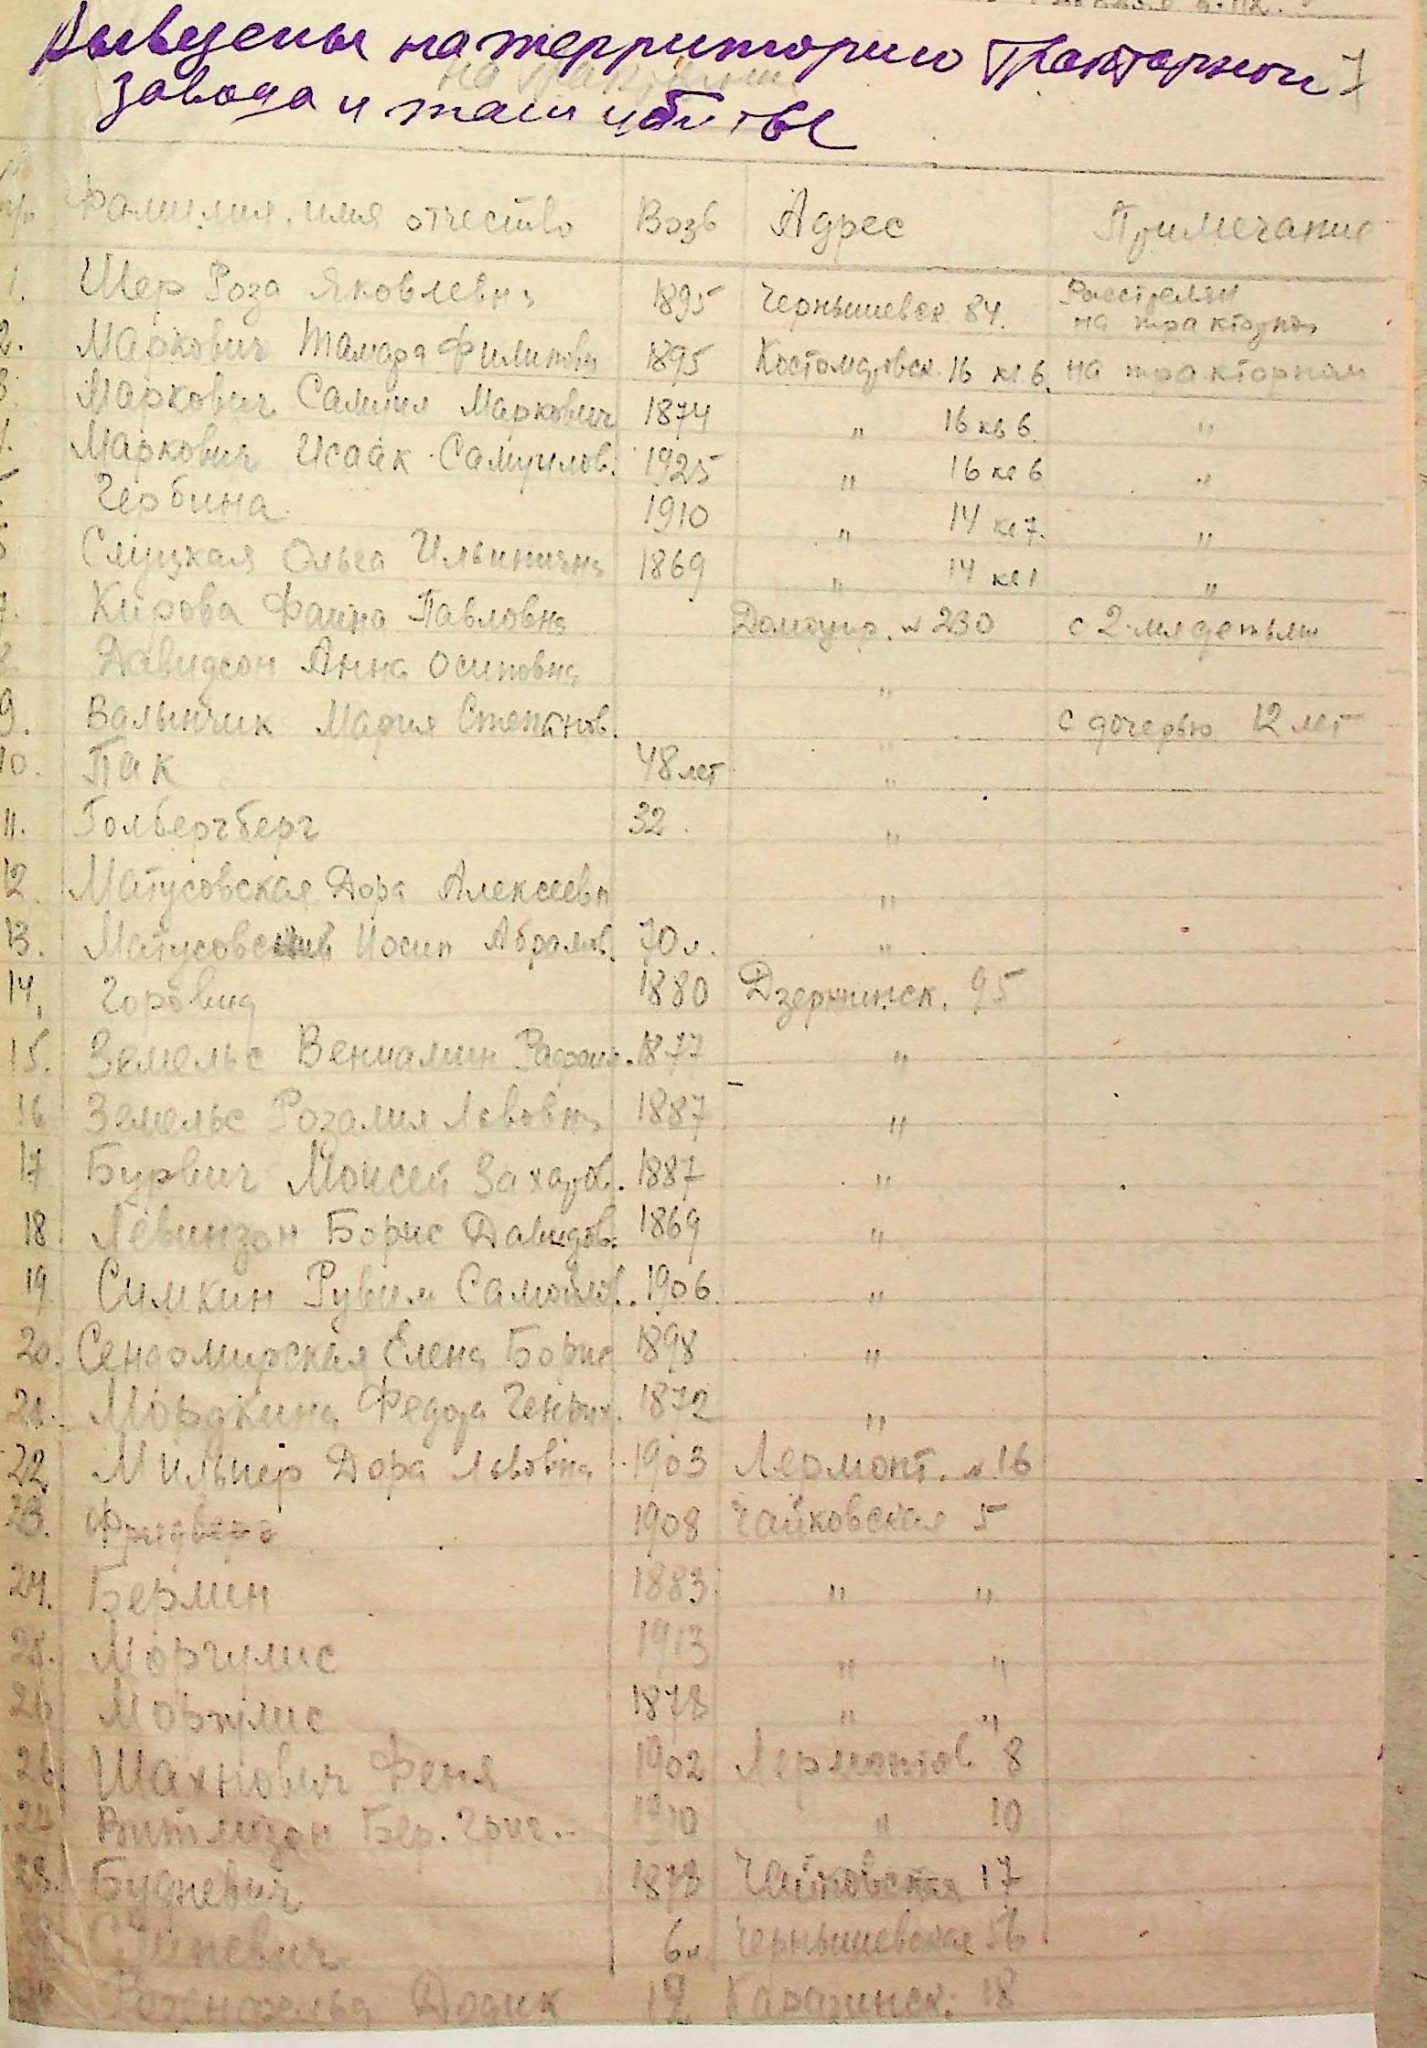 Выведены на территорию Тракторного 7
завода и там убиты
на тракторн
п/п Фамилия, имя отчество Возв Адрес Примечание
1. Шер Роза Яковлевна 1895 Чернышевск 84. Расстрелян
на тракторном
2. Маркович Тамара Филиповн 1895 Костомаровск. 16 кв 6. на тракторном
3. Маркович Самуил Маркович 1874 " 16 кв 6. "
4. Маркович Исаак Самуилов. 1925 " 16 кв 6 "
5 Чербина 1910 " 14 кв 7. "
6 Слуцкая Ольга Ильинична 1869 " 14 кв 1 "
7. Кирова Фаина Павловна Домоупр. № 230 с 2-мя детьми
8. Давидсон Анна Осиповна "
9. Валынчик Мария Степанов. " с дочерью 12 лет
10. Пак 48 лет "
11. Гольбергберг 32. "
12. Матусовская Дора Алексеевн "
13. Матусовский Иосип Абрамов. 70 л. "
14. Горовиц 1880 Дзержинск. 95
15. Земельс Вениамин Рафаил. 1877 "
16 Земельс Розалия Львовна 1887 "
17 Бурвич Моисей Захаров. 1887 "
18 Левинзон Борис Давидов. 1869 "
19 Симкин Рувим Самойлов. 1906 "
20. Сендомирская Елена Борис 1898 "
21. Мордкина Федора Генрих. 1872 "
22 Мильнер Дора Львовна 1903 Лермонт. № 16
23. 1908 Чайковская 5
24. Бермин 1883 " "
25. Моргулис 1913 " "
26 Моргулис 1878 " "
26. Шахнович Феня 1902 Лермонтов 8
Витлизон Бер. Григ. 1910 " 10
28. Будневич 1878 Чайковская 17
6 м. Чернышевская 56
Розенфельд Додик 12 Каразинск. 18